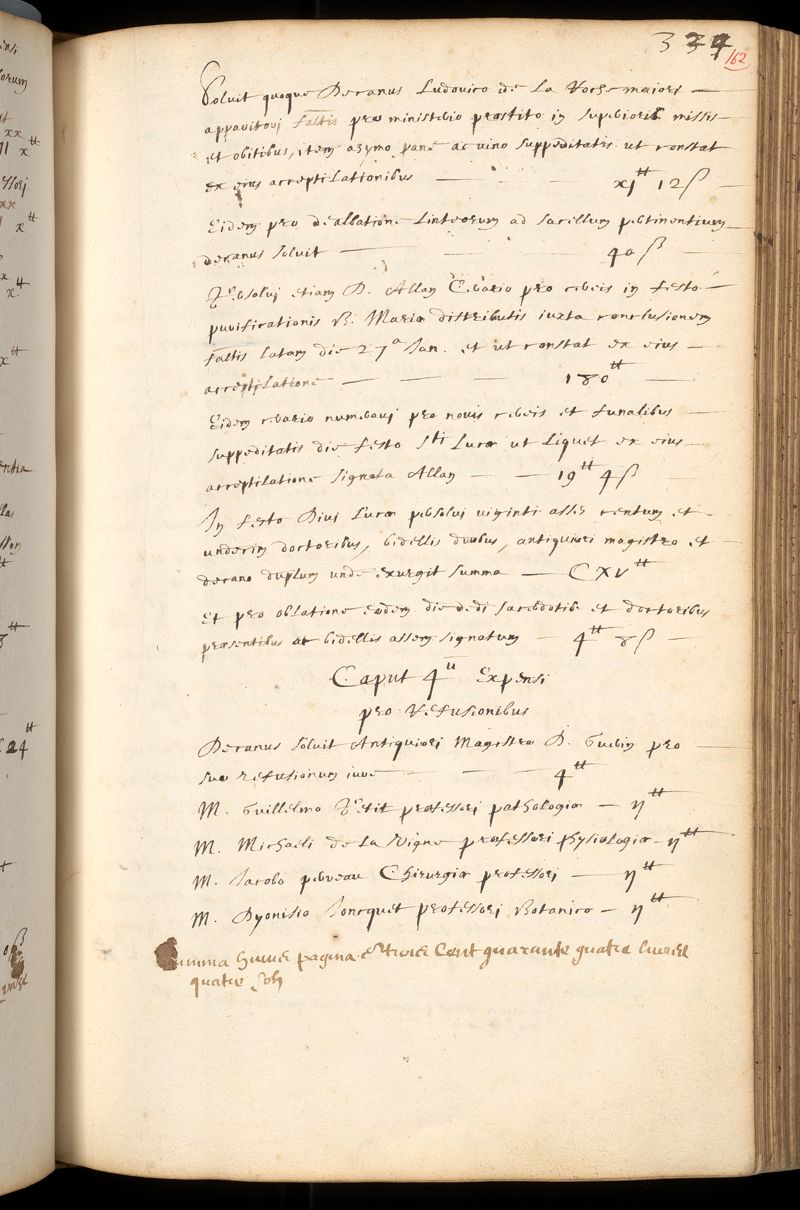 334
162
Solvit quoque Decanus Ludovico de La Roche maiori
apparitori faltis pro ministerio præstito in superiorib. missis
et obitibus, item azymo pane ac vino suppeditatis ut constat
ex eius acceptilationibus — xj ₶ 12 ß
Eidem pro dealbatione linteorum ad sacellum pertinentium
decanus solvit — 40 ß
Persolvi etiam D. Allan Cerario pro cereis in festo
purificationis B. Mariæ distributis iuxta conclusionem
faltis latam die 27a Jan. et ut constat ex eius
acceptilatione — 180 ₶
Eidem cerario numeravi pro novis cereis et funalibus
suppeditatis die festo Sti Lucæ ut liquet ex eius
acceptilatione signata Allan — 19 ₶ 4 ß
In festo Divi Lucæ persolvi viginti asses centum et
undecim doctoribus, bidellis duobus, antiquiori magistro et
decano duplum unde exurgit summa — CXV ₶
Et pro oblatione eodem die dedi sacerdotib. et doctoribus
præsentibus ac bidellis assem signatum — 4 ₶ 8 ß
Caput 4 u Expensi
pro Refusionibus
Decanus solvit Antiquiori Magistro D. pro
suo refusionum iure — 4 ₶
M. Guillelmo Petit professori pathologiæ — η ₶
M. Michaeli de La Vigne professori physiologiæ — η ₶
M. Jacobo perreau Chirurgiæ professori — η ₶
M. Dyonisio Joncquet professori Botanico — η ₶
Summa huius pagina Cent quarante quatre livres
quatre sols